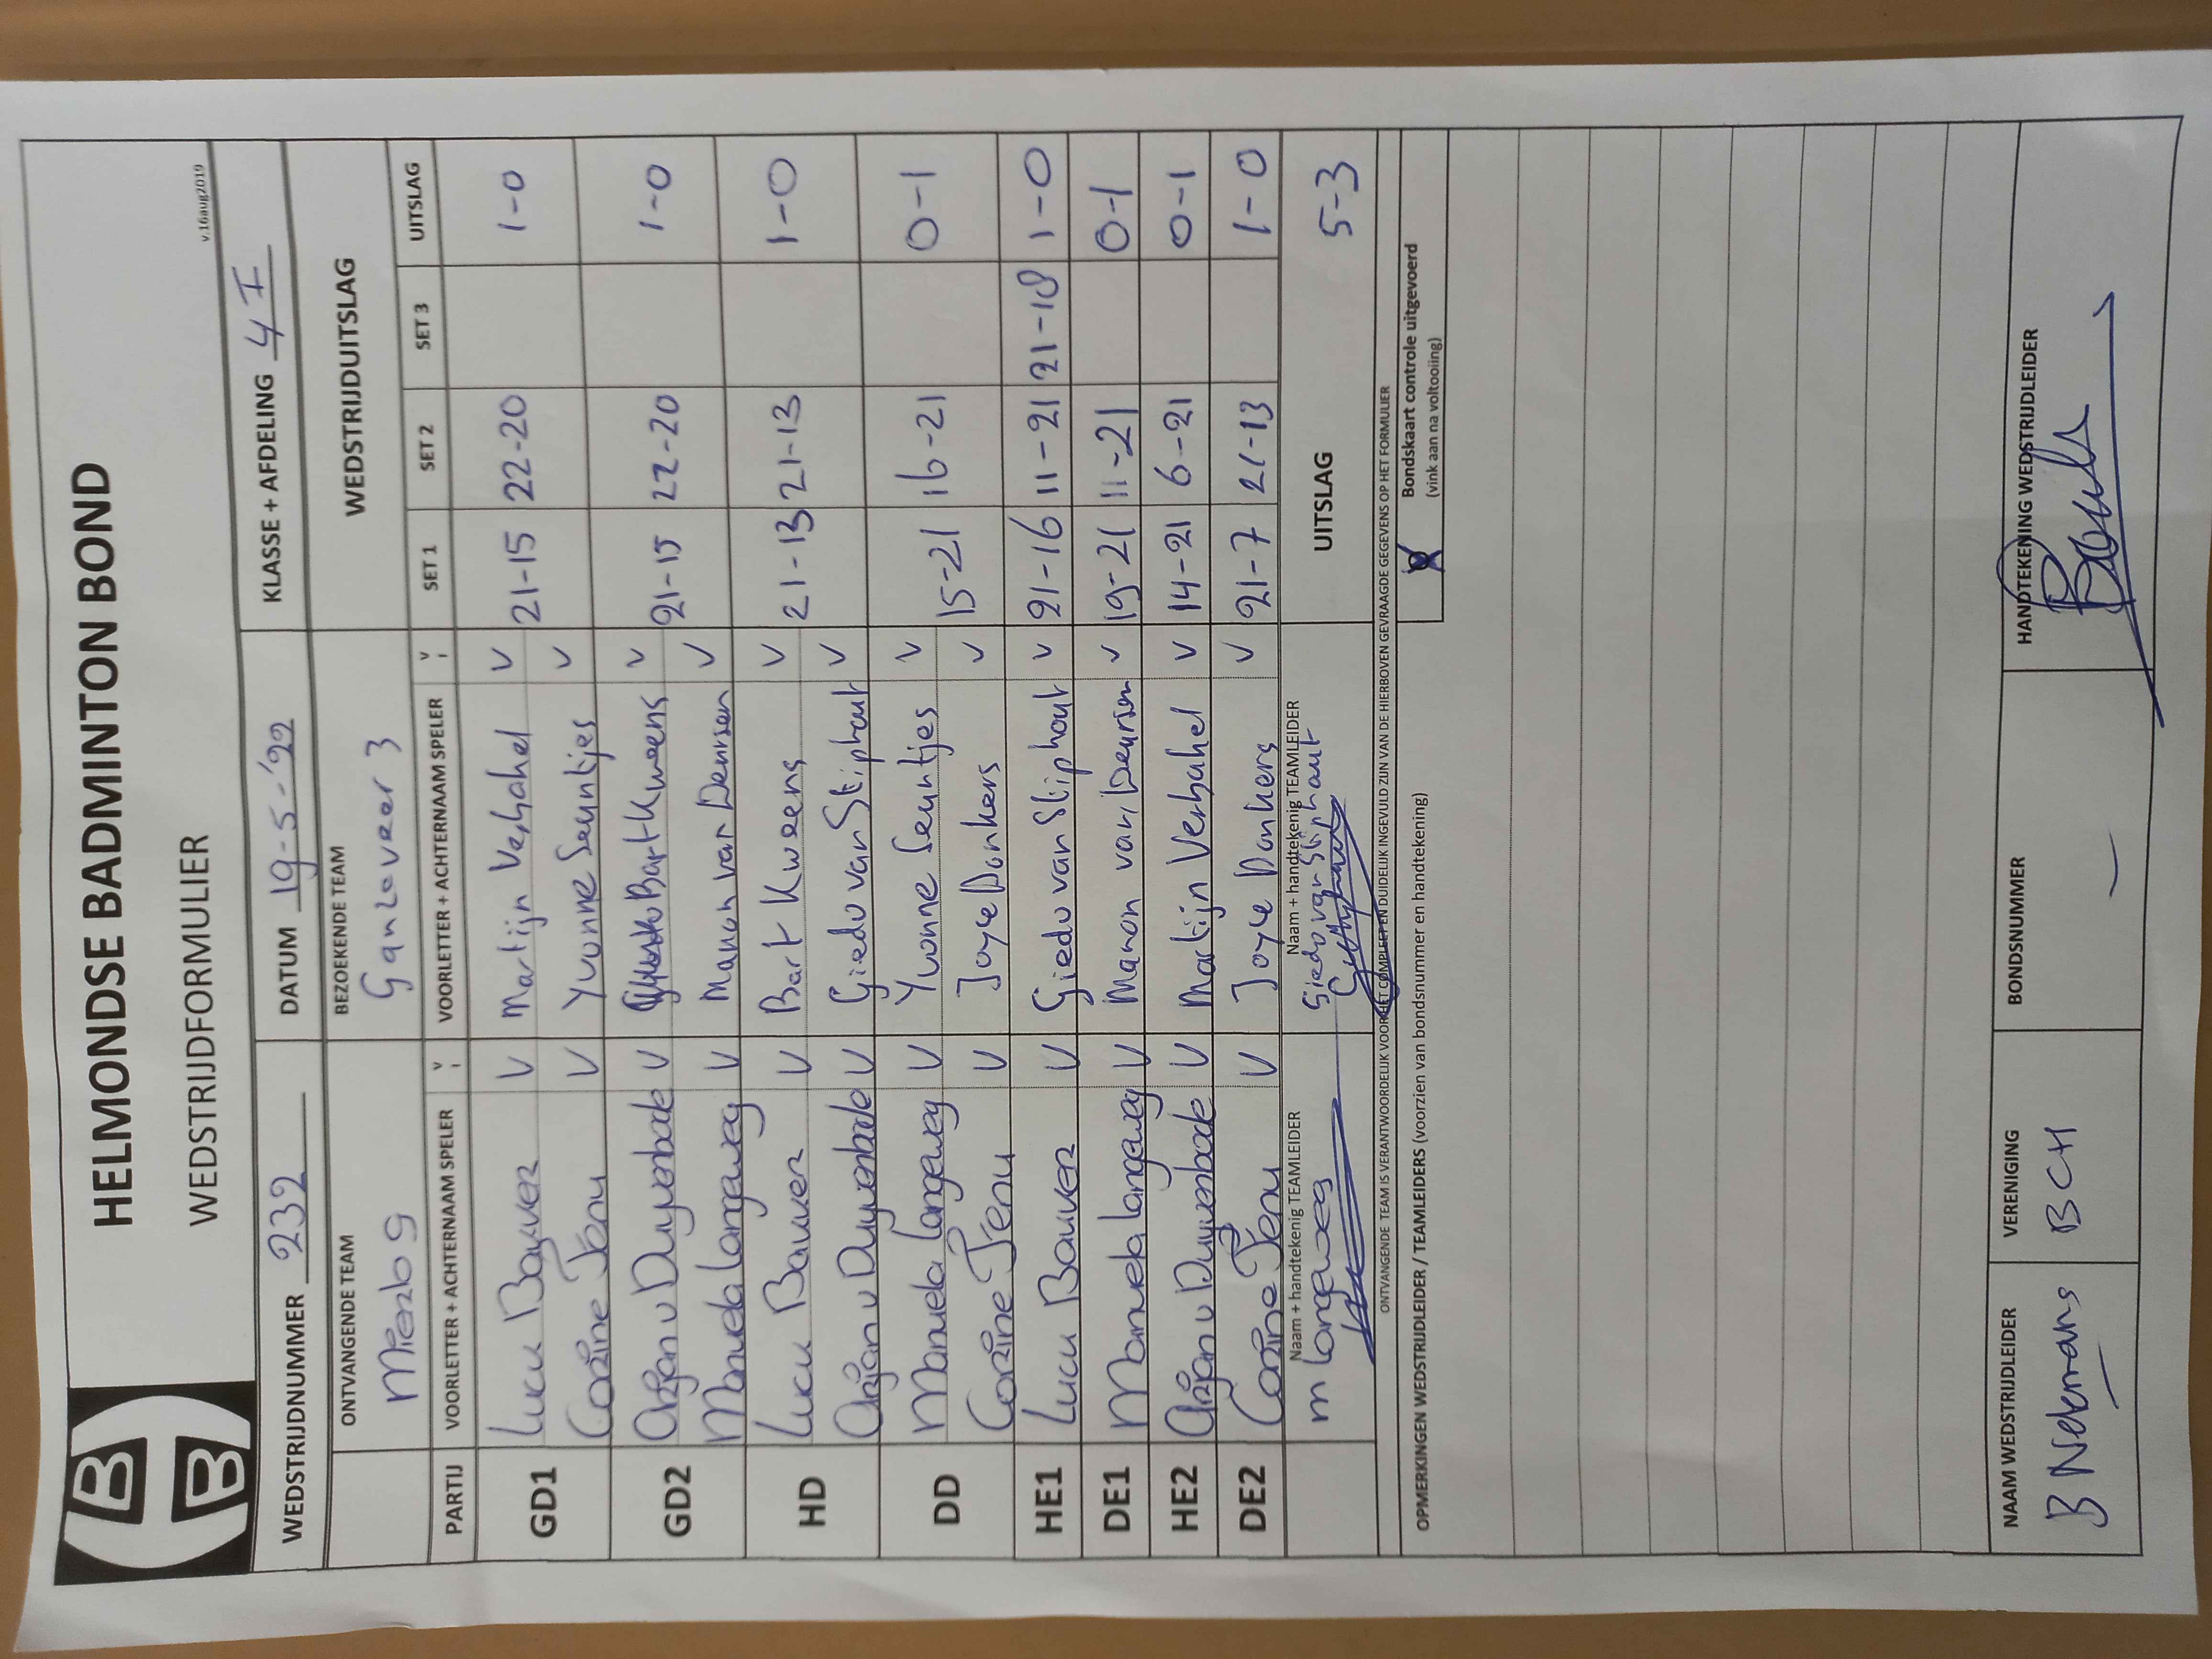 HELMONDSE BADMINTON BOND
WEDSTRIJDFORMULIER
v.16aug2019
WEDSTRIJDNUMMER 232 DATUM 19-5-'22 KLASSE + AFDELING 4 I
ONTVANGENDE TEAM BEZOEKENDE TEAM WEDSTRIJDUITSLAG
Mierlo 9 Ganzeveer 3
PARTIJ VOORLETTER + ACHTERNAAM SPELER V VOORLETTER + ACHTERNAAM SPELER V SET 1 SET 2 SET 3 UITSLAG
GD1 Lucu Bouwer V Martijn Verhahel V 21-15 22-20 1-0
Corine Jenu V Yvonne Seuntjes V
GD2 Arjan v Duyvenbode V Bart Kweens V 21-15 22-20 1-0
Manuela Langeweg V Manon van Deursen V
HD Lucu Bouwer V Bart Kweens V 21-13 21-13 1-0
Arjan v Duyvenbode V Giedo van Sliphout V
DD Manuela Langeweg V Yvonne Seuntjes V 15-21 16-21 0-1
Corine Jenu V Joyce Donkers V
HE1 Lucu Bouwer V Giedo van Sliphout V 21-16 11-21 21-18 1-0
DE1 Manuela Langeweg V Manon van Deursen V 19-21 11-21 0-1
HE2 Arjan v Duyvenbode V Martijn Verhahel V 14-21 6-21 0-1
DE2 Corine Jenu V Joyce Donkers V 21-7 21-13 1-0
Naam + handtekenig TEAMLEIDER Naam + handtekenig TEAMLEIDER UITSLAG 5-3
m Langeweg Giedo van Sliphout
ONTVANGENDE TEAM IS VERANTWOORDELIJK VOOR HET COMPLEET EN DUIDELIJK INGEVULD ZIJN VAN DE HIERBOVEN GEVRAAGDE GEGEVENS OP HET FORMULIER
OPMERKINGEN WEDSTRIJDLEIDER / TEAMLEIDERS (voorzien van bondsnummer en handtekening)
X Bondskaart controle uitgevoerd
(vink aan na voltooiing)
NAAM WEDSTRIJDLEIDER VERENIGING BONDSNUMMER HANDTEKENING WEDSTRIJDLEIDER
B Nekemans BCH —